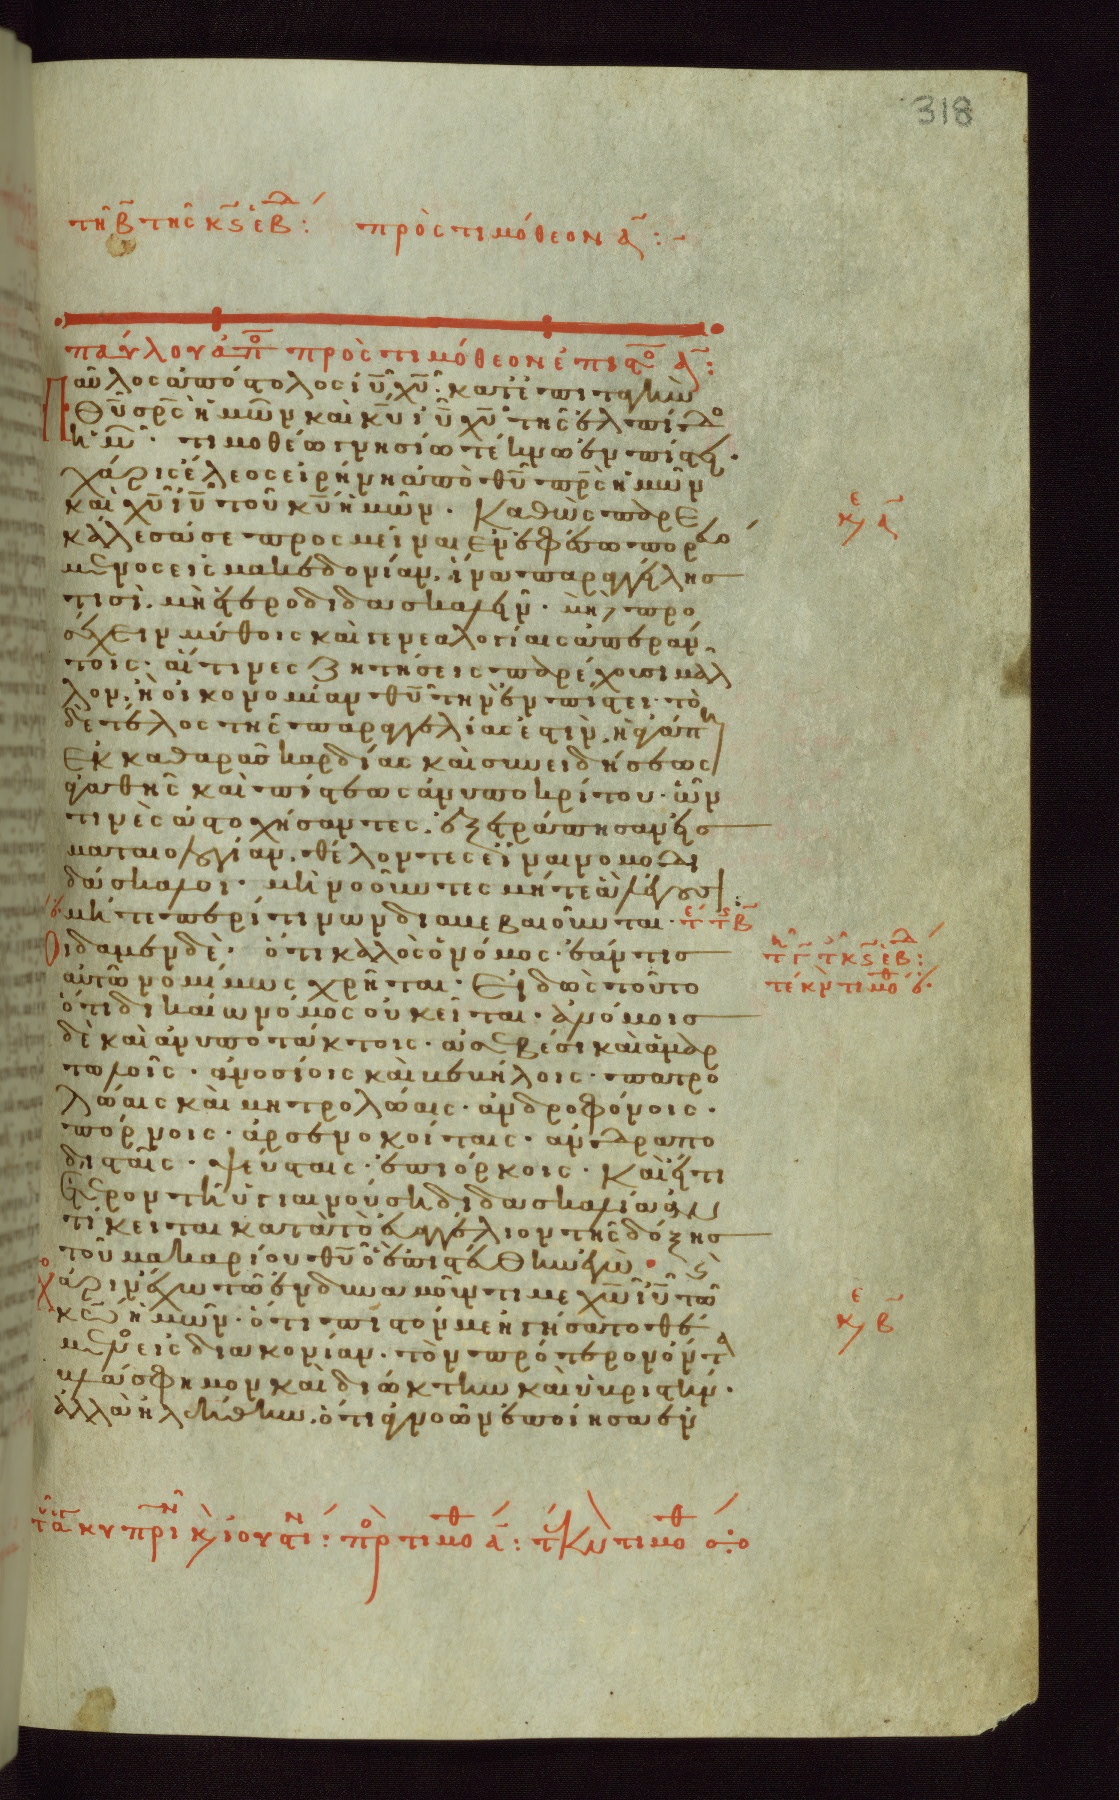 318
τῆ β̄ τῆς κϛ̄ ἑβδ: πρὸς τιμόθεον ᾱ:-
παύλου ἀπο πρὸς τιμόθεον ἐπιστο ᾱ:
Παῦλος ἀπόστολος ἰῦ χῦ· κατ' ἐπιταγὴν
θῦ σρς ἡμῶν καὶ κῦ ἰῦ χῦ τῆς ἐλπίδο
ἡμ· τιμοθέω γνησίω τέκνω ἐν πίστει·
χάρις ἔλεος εἰρήνη ἀπὸ θῦ πρς ἡμῶν
καὶ χῦ ἰῦ τοῦ κῦ ἡμῶν. Καθὼς παρε
κάλεσά σε προσμεῖναι ἐν ἐφέσω πορευό
μενος εἰς μακεδονίαν. ἵνα παραγγείλης
τισὶ. μὴ ἑτεροδιδασκαλεῖν. μὴ προ
σέχειν μύθοις καὶ γενεαλογίαις ἀπεράν
τοις. αἵτινες ζητήσεις παρέχουσι μᾶλ
λον. ἢ οἰκονομίαν θῦ τὴν ἐν πίστει. τὸ
δὲ τέλος τῆς παραγγελίας ἐστὶν. ἡ ἀγάπη
ἐκ καθαρᾶς καρδίας καὶ συνειδήσεως
ἀγαθῆς καὶ πίστεως ἀνυποκρίτου. ὧν
τινὲς ἀστοχήσαντες. ἐξετράπησαν εἰς
ματαιολογίαν. θέλοντες εἶναι νομοδι
δάσκαλοι. μὴ νοοῦντες μήτε ἃ λέγουσι:
μήτε περὶ τίνων διαβεβαιοῦνται. τε τ β
Οἴδαμεν δὲ. ὅτι καλὸς ὁ νόμος. ἐάν τις
αὐτῶ νομίμως χρῆται. Εἰδὼς τοῦτο
ὅτι δικαίω νόμος οὐ κεῖται. ἀνόμοις
δὲ καὶ ἀνυποτάκτοις. ἀσεβέσι καὶ ἁμαρ
τωλοῖς. ἀνοσίοις καὶ βεβήλοις. πατρο
λώαις καὶ μητρολώαις. ἀνδροφόνοις.
πόρνοις. ἀρσενοκοίταις. ἀνδραπο
δισταῖς. ψεύσταις. ἐπιόρκοις. Καὶ εἴ τι
ἕτερον τῆ ὑγιαινούση διδασκαλία ἀν
τίκειται κατὰ τὸ εὐαγγέλιον τῆς δόξης
τοῦ μακαρίου θῦ ὃ ἐπιστεύθην ἐγώ.
χάριν ἔχω τῶ ἐνδυναμοῦντί με χῶ ἰῦ τῶ
κῶ ἡμῶν. ὅτι πιστόν με ἡγήσατο θέ
μενος εἰς διακονίαν. τὸν πρότερον ὄντα
βλάσφημον καὶ διώκτην καὶ ὑβριστήν.
ἀλλὰ ἠλεήθην. ὅτι ἀγνοῶν ἐποίησα ἐν
κε ᾱ
τ γ τ κϛ ἑβδ:
τέκν τιμοθ
κε β
κυπρι κ ἰουστιν: πρ τιμοθ ᾱ: τέκν τιμοθ